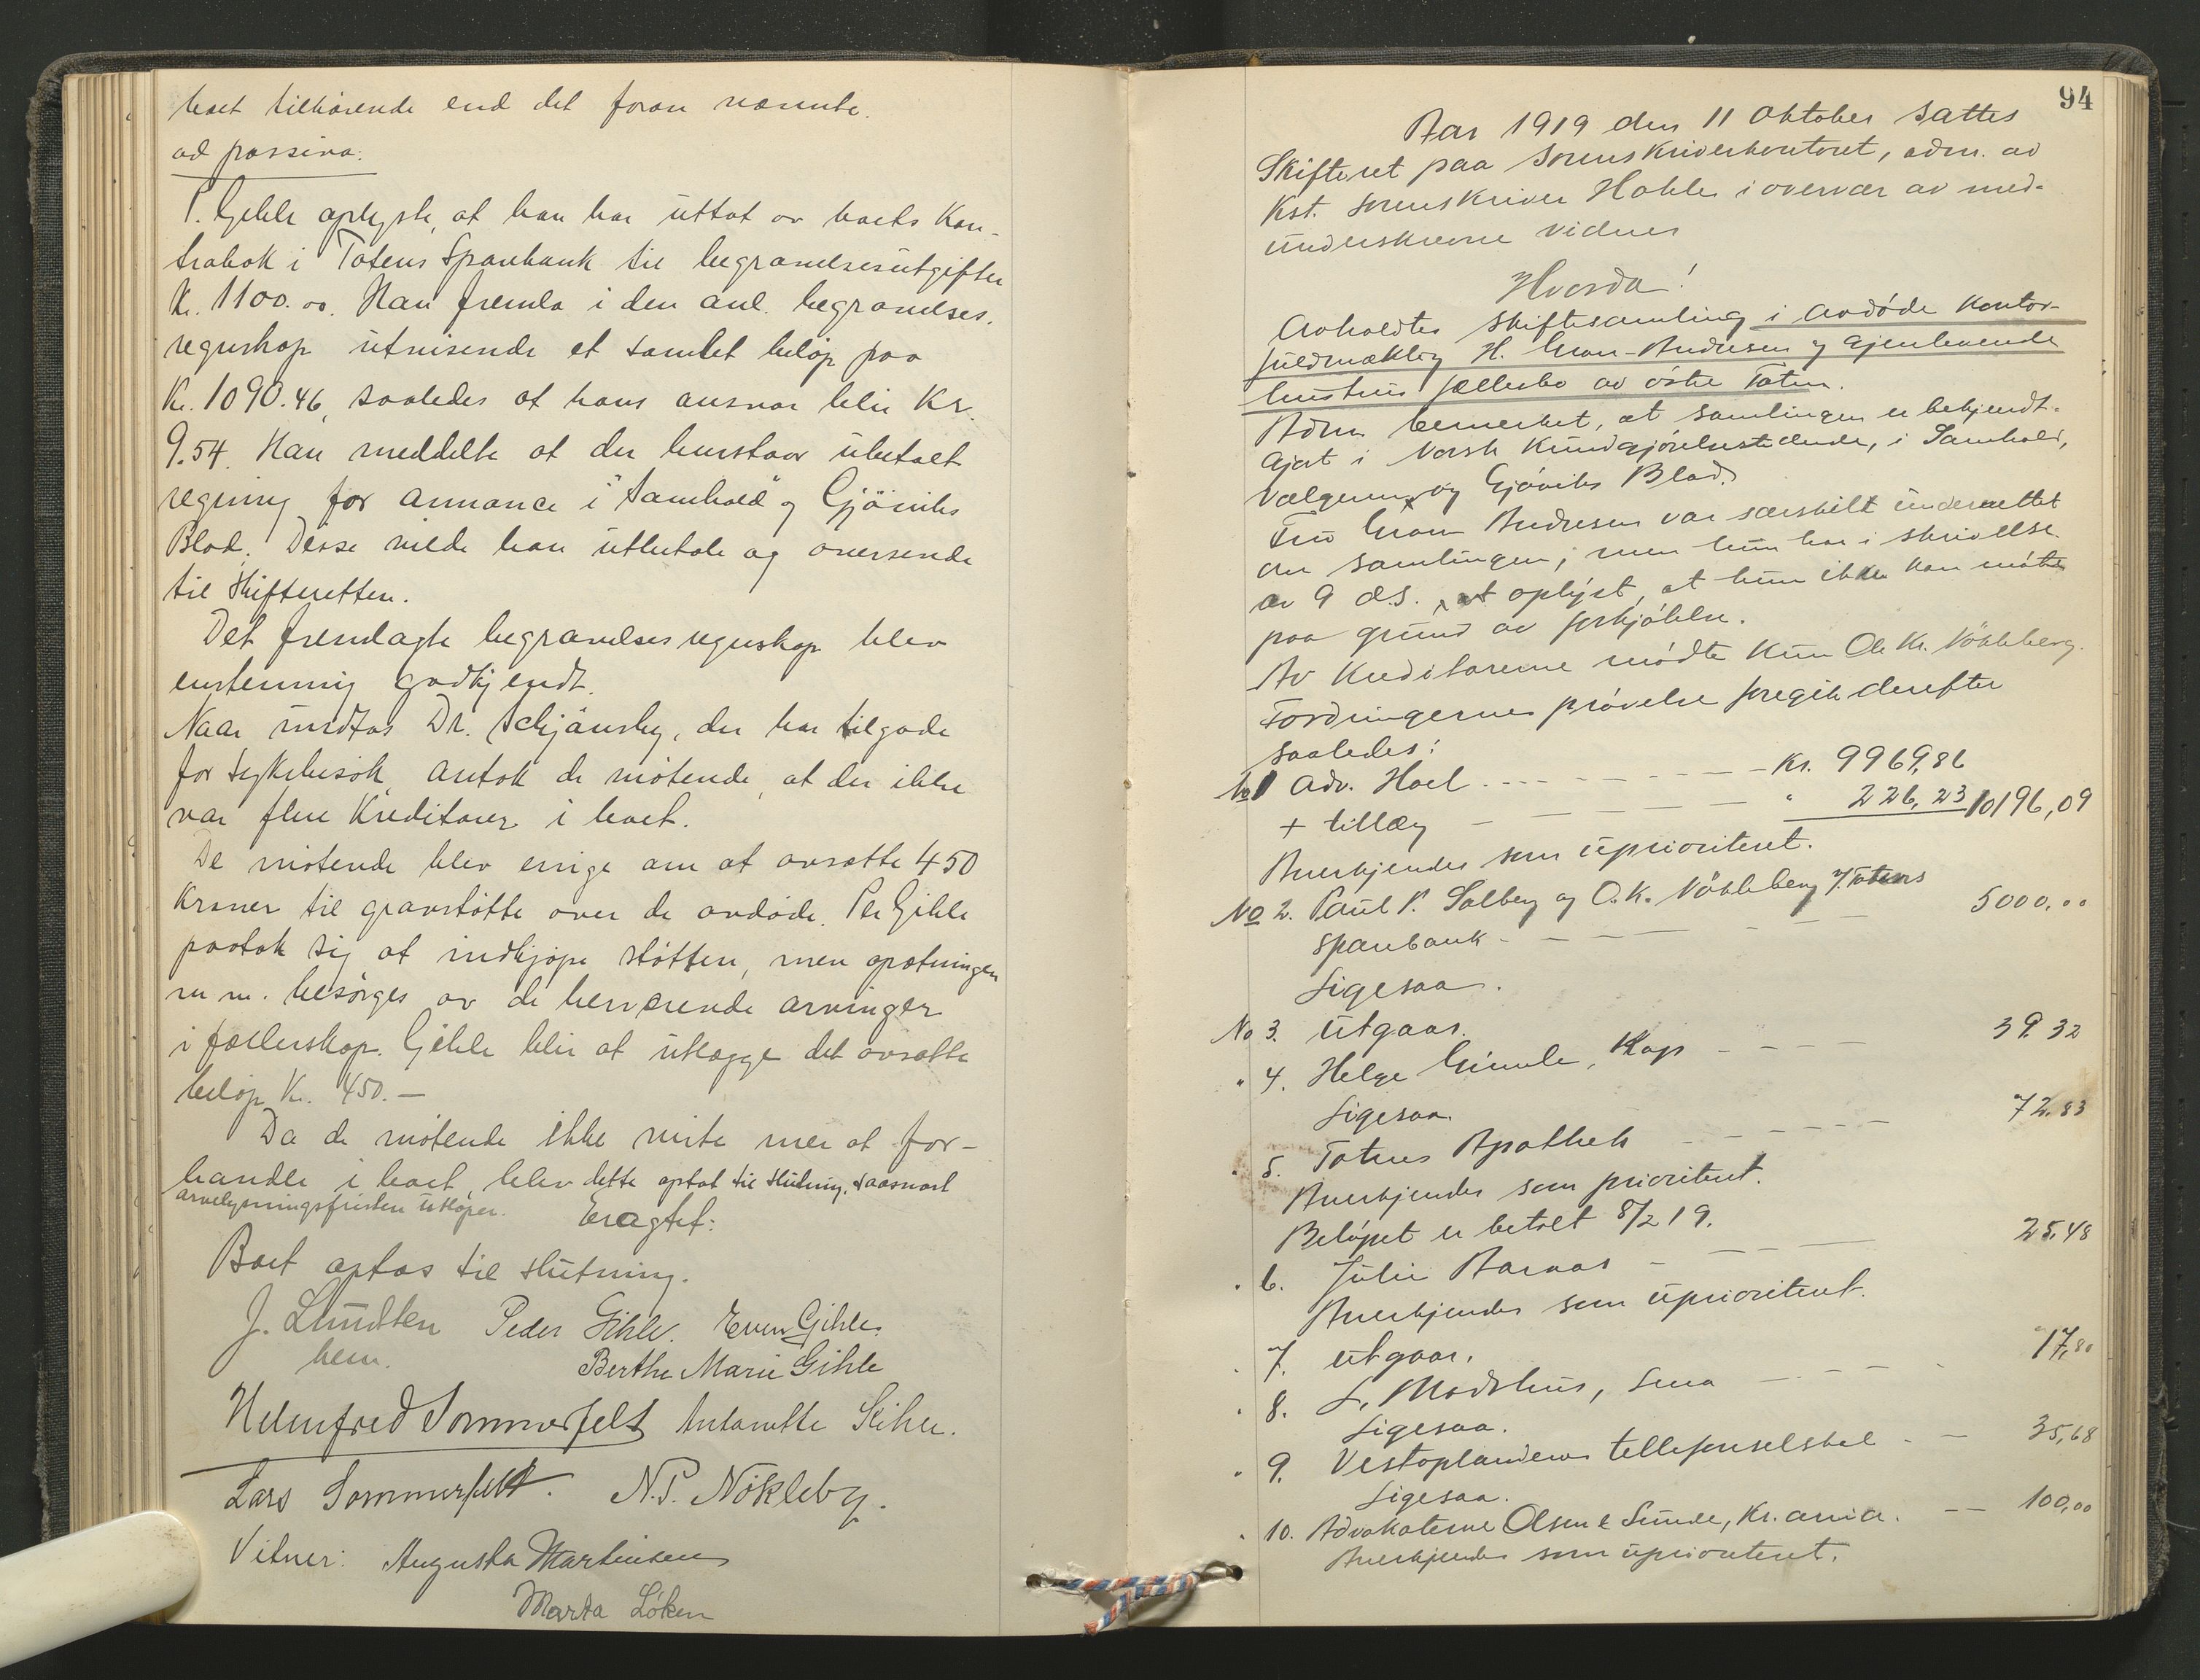 boet tilhørende end det foran nævnte.
ad passiva:
P. Gihle oplyste, at han har uttat av boets Kon-
trabok i Totens Sparebank til begravelsesutgifter
Kr. 1100.00. Han fremla i den anl. begravelses-
regnskap utvisende et samlet beløp paa
Kr. 1090.46, saaledes at hans ansvar blir Kr.
9.54. Han meddelte at der henstaar ubetalt
regning for annonce i "Samhold" og Gjöviks
Blad. Disse vilde han utbetale og oversende
til Skifteretten.
Det fremlagte begravelsesregnskap blev
enstemmig godkjendt.
Naar undtas Dr. Schjänsby, der har tilgode
for sykebesök, antok de møtende, at der ikke
var flere Kreditorer i boet.
De møtende blev enige om at avsætte 450
Kroner til gravstøtte over de avdøde. Per Gihle
paatok sig at indkjøpe støtten, men opsætningen
m.m. besørges av de herværende arvinger
i fællerskap. Gihle blir at utlægge det avsatte
beløp Kr. 450.—
Da de møtende ikke viste mer at for-
handle i boet, blev dette optat til slutning, saasnart
arvelysningsfristen utløper. Eragtet:
Boet optas til slutning.
J. Lundten Peder Gihle. Even Gihle.
bem. Berthe Marie Gihle
Helmfred Sommerfelt Antonette Gihle.
Lars Sommerfelt. N.P. Nökleby.
Vitner: Augusta Martinsen
Marta Løken
94
Aar 1919 den 11 Oktober sattes
Skifteret paa Sorenskriverkontoret, adm. av
Kst. sorenskriver Hohle i overvær av med-
underskrevne vidner
Hvorda!
Avholdtes skiftesamling i avdøde Kontor-
fuldmæktig H. Gran-Andresen og gjenlevende
hustrus fællesbo av østre Toten.
Adm. bemerket, at samlingen er bekjendt-
gjort i Norsk Kundgjørelsestidende, i Samhold,
Vælgeren og Gjøviks Blad.
Fru Gran Andresen var særskilt underrettet
om samlingen; men hun har i skrivelse
av 9 ds. oplyst, at hun ikke kan møte
paa grund av forkjølelse.
Av Kreditorerne mødte kun Ole Kr. Nökkleberg.
Fordringernes prøvelse foregik derefter
saaledes:
No 1 Adv. Hoel - - - - Kr. 9969,86
+ tillæg - - - " 226,23 10196,09
Anerkjendes som uprioritert.
No 2. Paul P. Solberg og O.K. Nökkleberg f. Totens
Sparebank - - - - 5000,00
Ligesaa.
No 3. utgaar.
" 4. Helge Gimle, Kap - - - - 39.32
Ligesaa.
" 5. Totens Apothek - - - - 72.83
Anerkjendes som prioritert.
Beløpet er betalt 8/2 19.
" 6. Julie Aarnas - - - 25,48
Anerkjendes som uprioritert.
" 7. utgaar.
" 8. L. Modshus, Lena - - - 17,80
Ligesaa.
" 9. Vestoplandenes tellefonselskal - - 35,68
Ligesaa.
" 10. Advokaterne Olsen & Sunde, Kr.ania. - - 100,00
Anerkjendes som uprioritert.